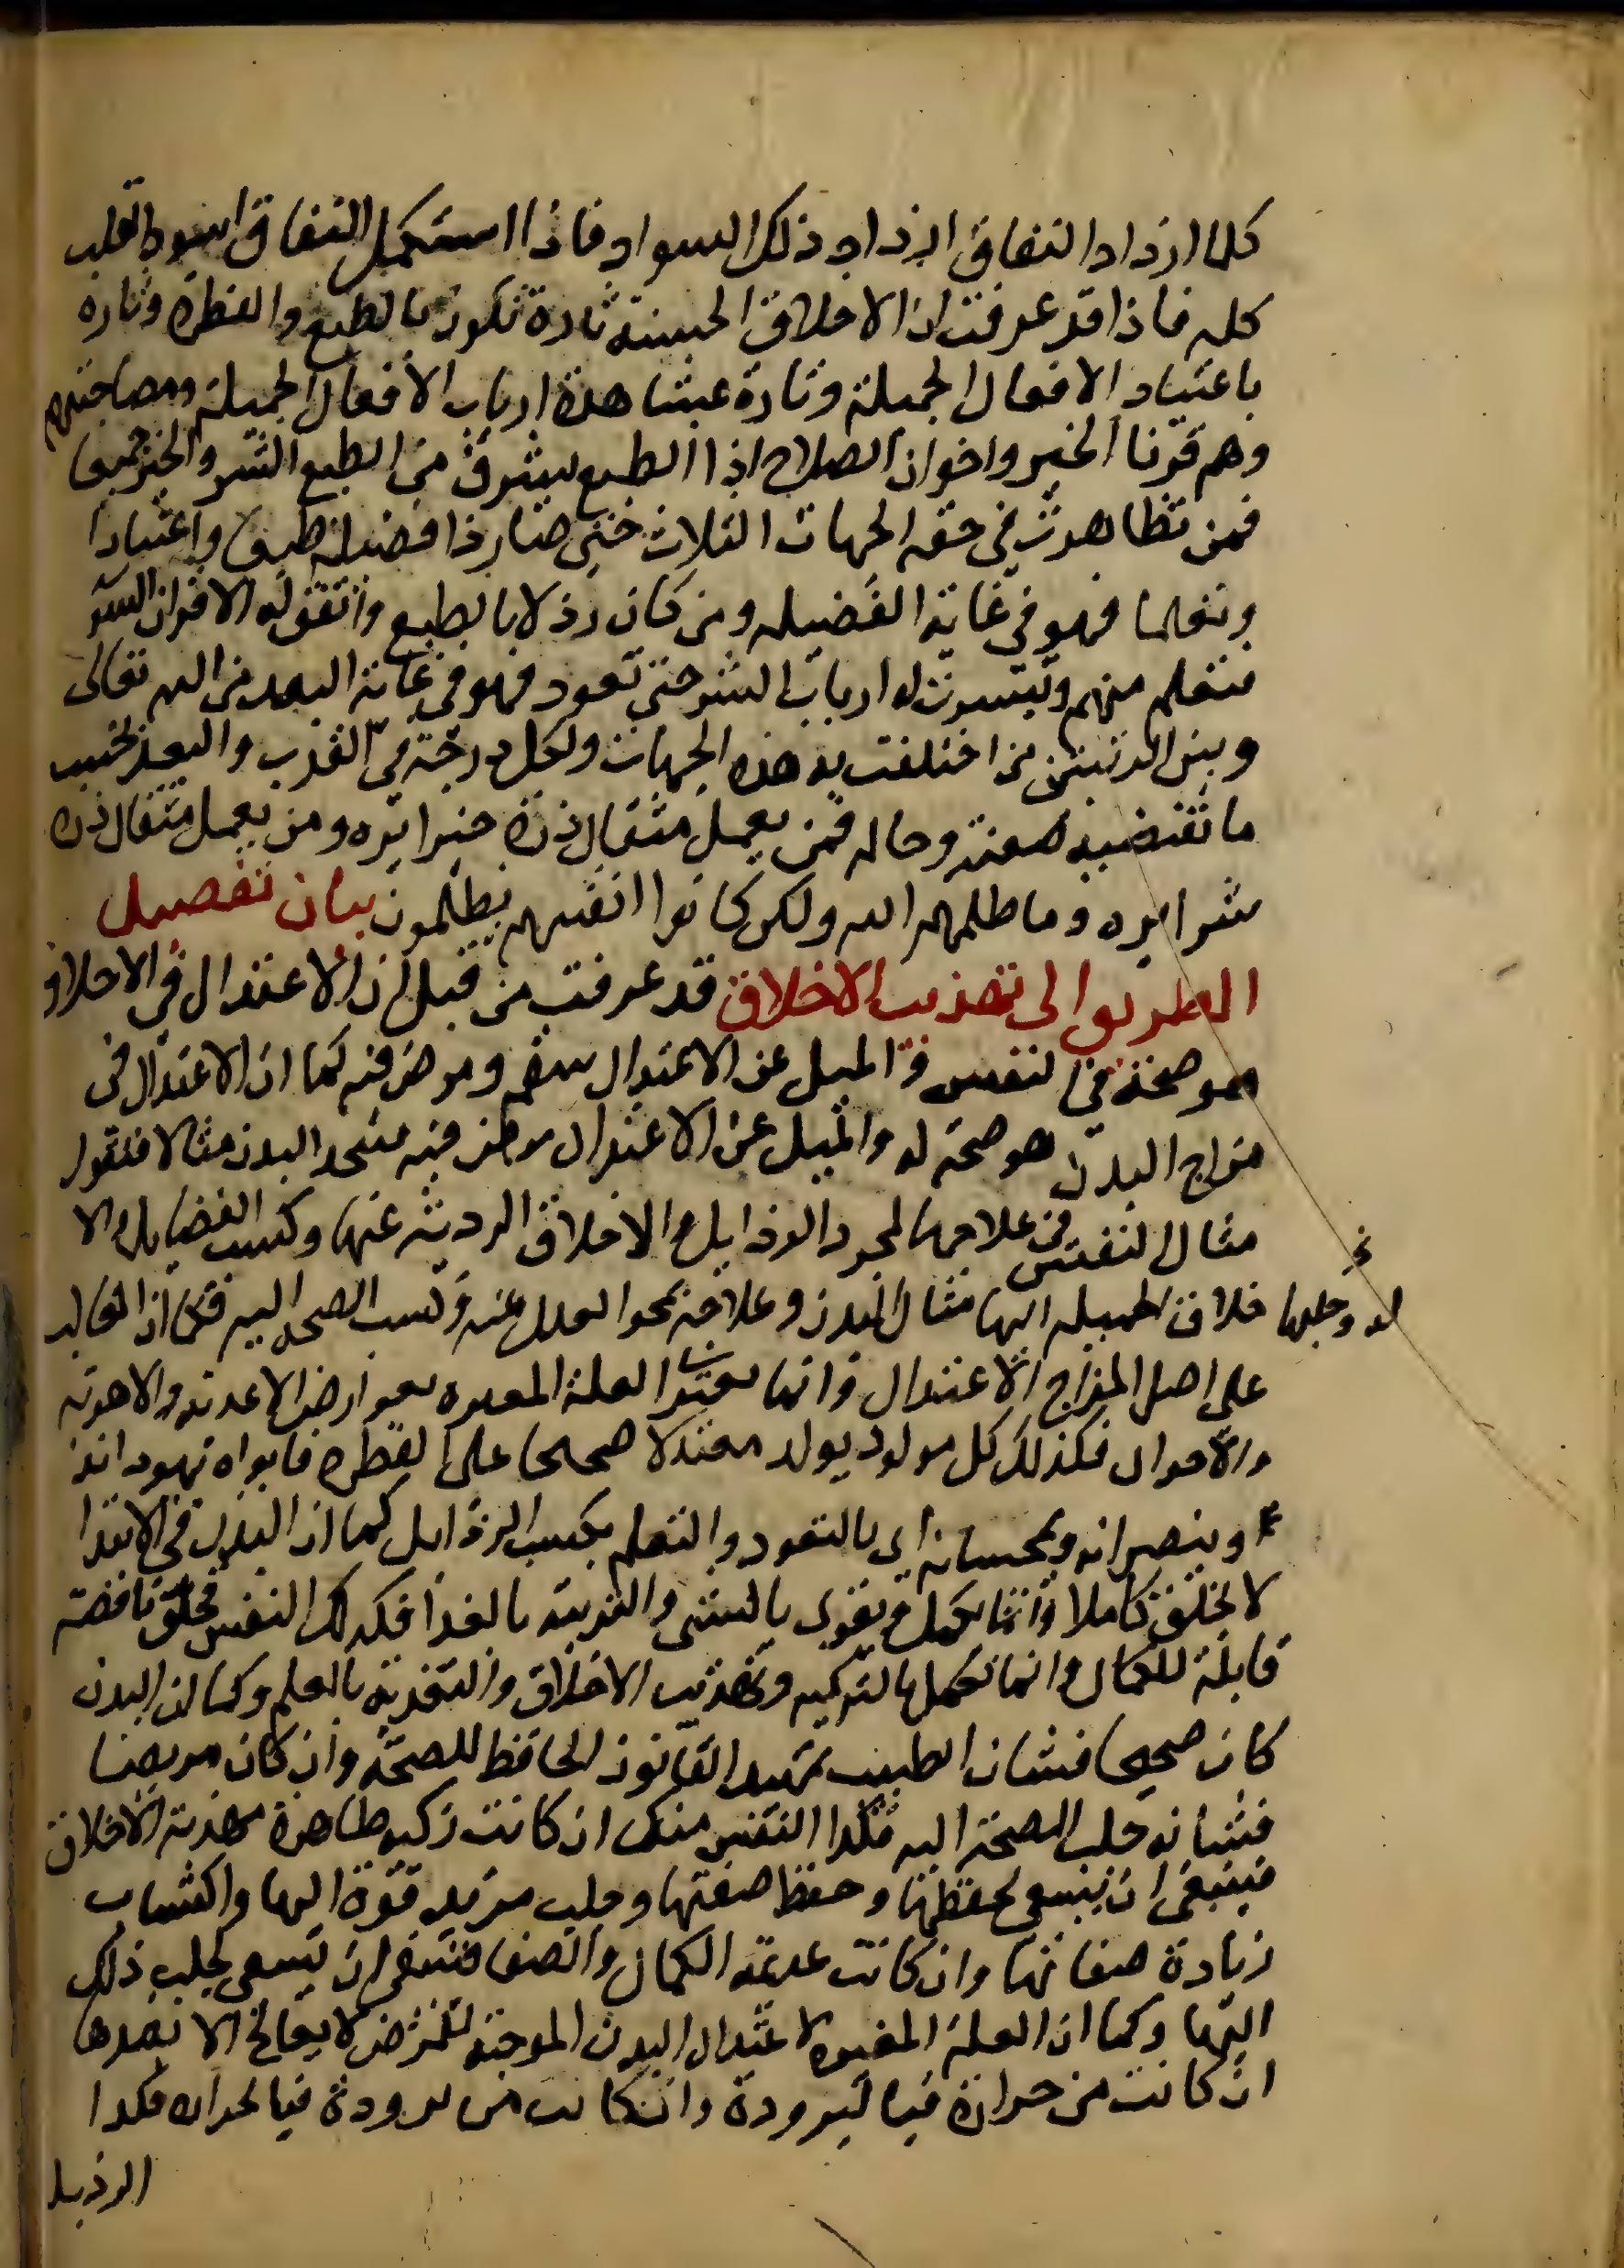 كلما ازداد النفاق ازداد ذلك السواد فاذا استكمل النفاق اسود القلب
كله فاذا قد عرفت ان الاخلاق الحسنة تارة تكون بالطبع والفطرة وتارة
باعتياد الافعال الجميلة وتارة بمشاهدة ارباب الافعال الجميلة ومصاحبتهم
وهم قرنا الخير واخوان الصلاح اذا الطبع يسرق من الطبع الشر والخير جميعا
فمن تظاهرت في حقه الجهات الثلاث حتى صار ذا فضيلة طبعا واعتيادا
وتعلما فهو في غاية الفضيله ومن كان رذلا بالطبع واتفق له الاقران السو
فتعلم منهم وتيسرت له ارباب الشر حتى تعود فهو في غاية البعد من الله تعالى
وبين الرتبتين من اختلفت به هذه الجهات ولكل درجة في القرب والبعد بحسب
ما تقتضيه صفته وحاله فمن يعمل مثقال ذرة خيرا يره ومن يعمل مثقال ذرة
شرا يره وما ظلمهم الله ولكن كانوا انفسهم يظلمون بيان تفصيل
الطريق الى تهذيب الاخلاق قد عرفت من قبل ان الاعتدال في الاخلاق
هو صحة في النفس والميل عن الاعتدال سقم ومرض فيه كما ان الاعتدال في
مزاج البدن هو صحة له والميل عن الاعتدال مرض فيه فنتخذ البدن مثالا فنقول
مثال النفس في علاجها لمحو الرذايل والاخلاق الرديئة عنها وكسب الفضايل والا
خلاق الجميله اليها مثال البدن وعلاجه بمحو العلل عنه وكسب الصحة اليه فكما ان الغالب
له وجلبها
على اصل المزاج الاعتدال وانما تعتري العلة المغيره بعوارض الاغدية والاهوية
والاحوال فكذلك كل مولود يولد معتدلا صحيحا على الفطره فابواه يهودانه
وينصرانه ويمجسانه اى بالتعود والتعلم يكسب الرذايل كما ان البدن في الابتدا
لا يخلق كاملا وانما يكمل ويقوى بالنشئ والتربية بالغدا فكدلك النفس تخلق ناقصة
قابلة للكمال وانما تكمل بالتزكيه وتهذيب الاخلاق والتغذية بالعلم وكما ان البدن
كان صحيحا فشان الطبيب تمهيد القانون الحافظ للصحة وان كان مريضا
فشانه جلب الصحة اليه فكدا النفس منك ان كانت زكيه طاهرة مهدبة الاخلاق
فينبغى ان يسعى لحفظها وحفظ صفتها وجلب مزيد قوة اليها واكتساب
زيادة صفائها وان كانت عديمة الكمال والصفا فينبغى ان يسعى لجلب ذلك
اليها وكما ان العلة المغيره لاعتدال البدن الموجبة للمرض لا يعالج الا بضدها
ان كانت من حرارة فبالبرودة وان كانت من برودة فبالحراره فكدا
الرذيلة